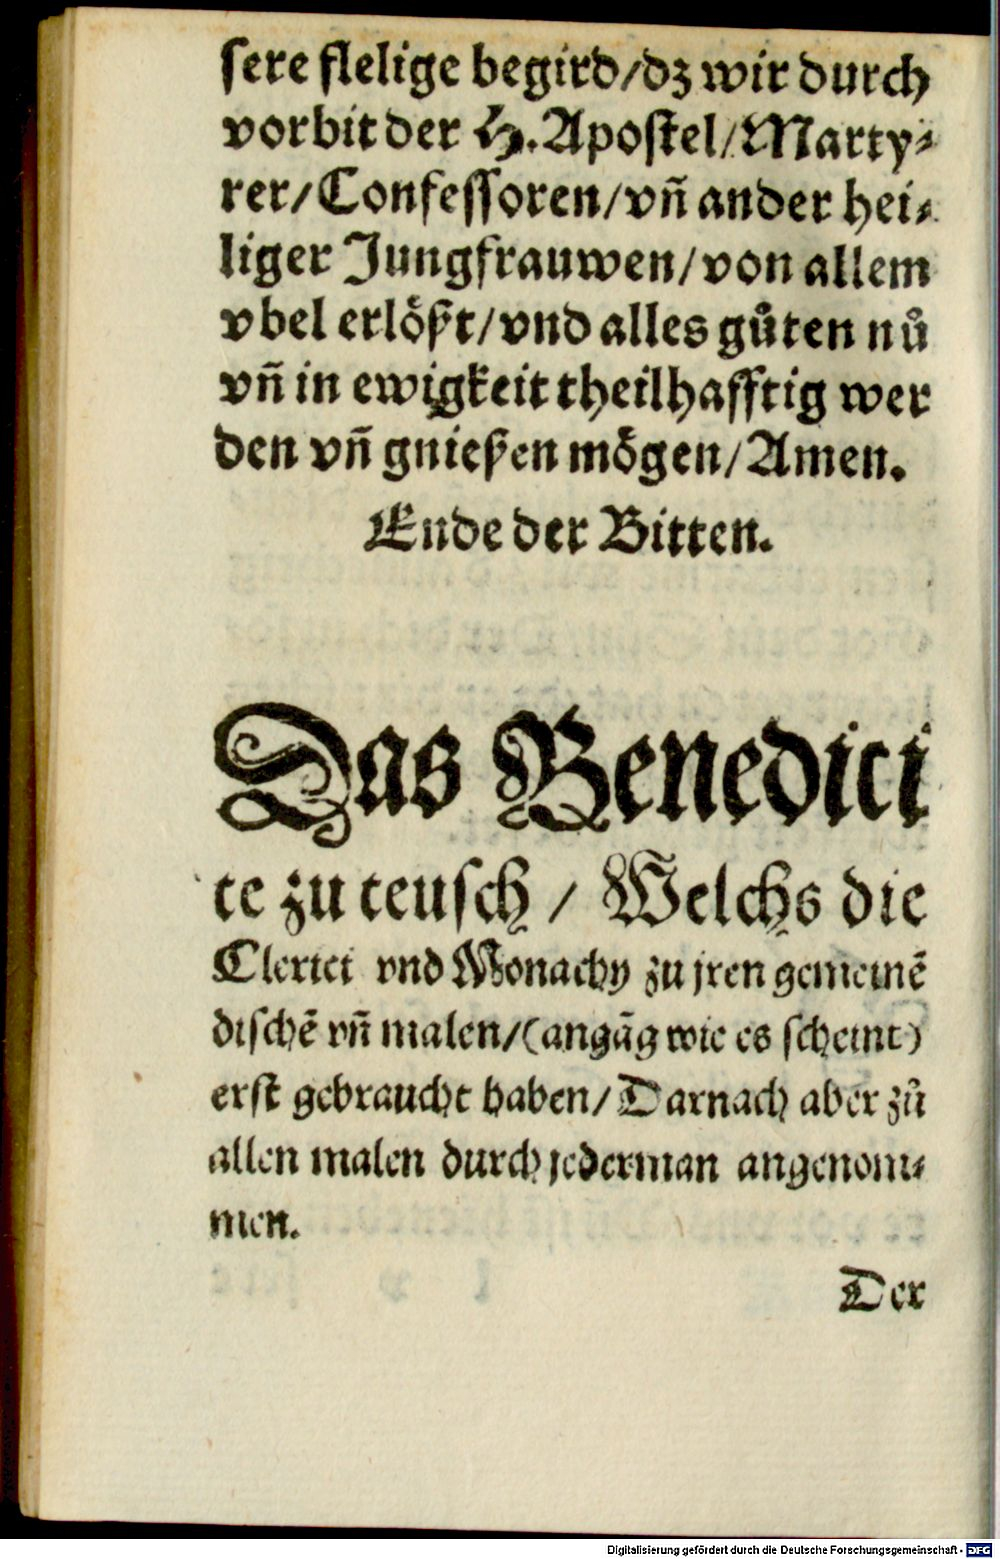 ſere flelige begird/dz wir durch
vorbit der H. Apoſtel/Marty⸗
rer/Confeſſoren/vñ ander hei⸗
liger Jungfrauwen/von allem
vbel erlößt/vnd alles gůten nů
vñ in ewigkeit theilhafftig wer
den vñ gnießen mögen/Amen.
Ende der Bitten.
Das Benedici
te zu teuſch / Welchs die
Cleriei vnd Monachy zu jren gemeinẽ
diſchẽ vñ malen/(angãg wie es ſcheint)
erſt gebraucht haben/Darnach aber zů
allen malen durch jederman angenom⸗
men.
Der
Digitalisierung gefördert durch die Deutsche Forschungsgemeinschaft - DFG